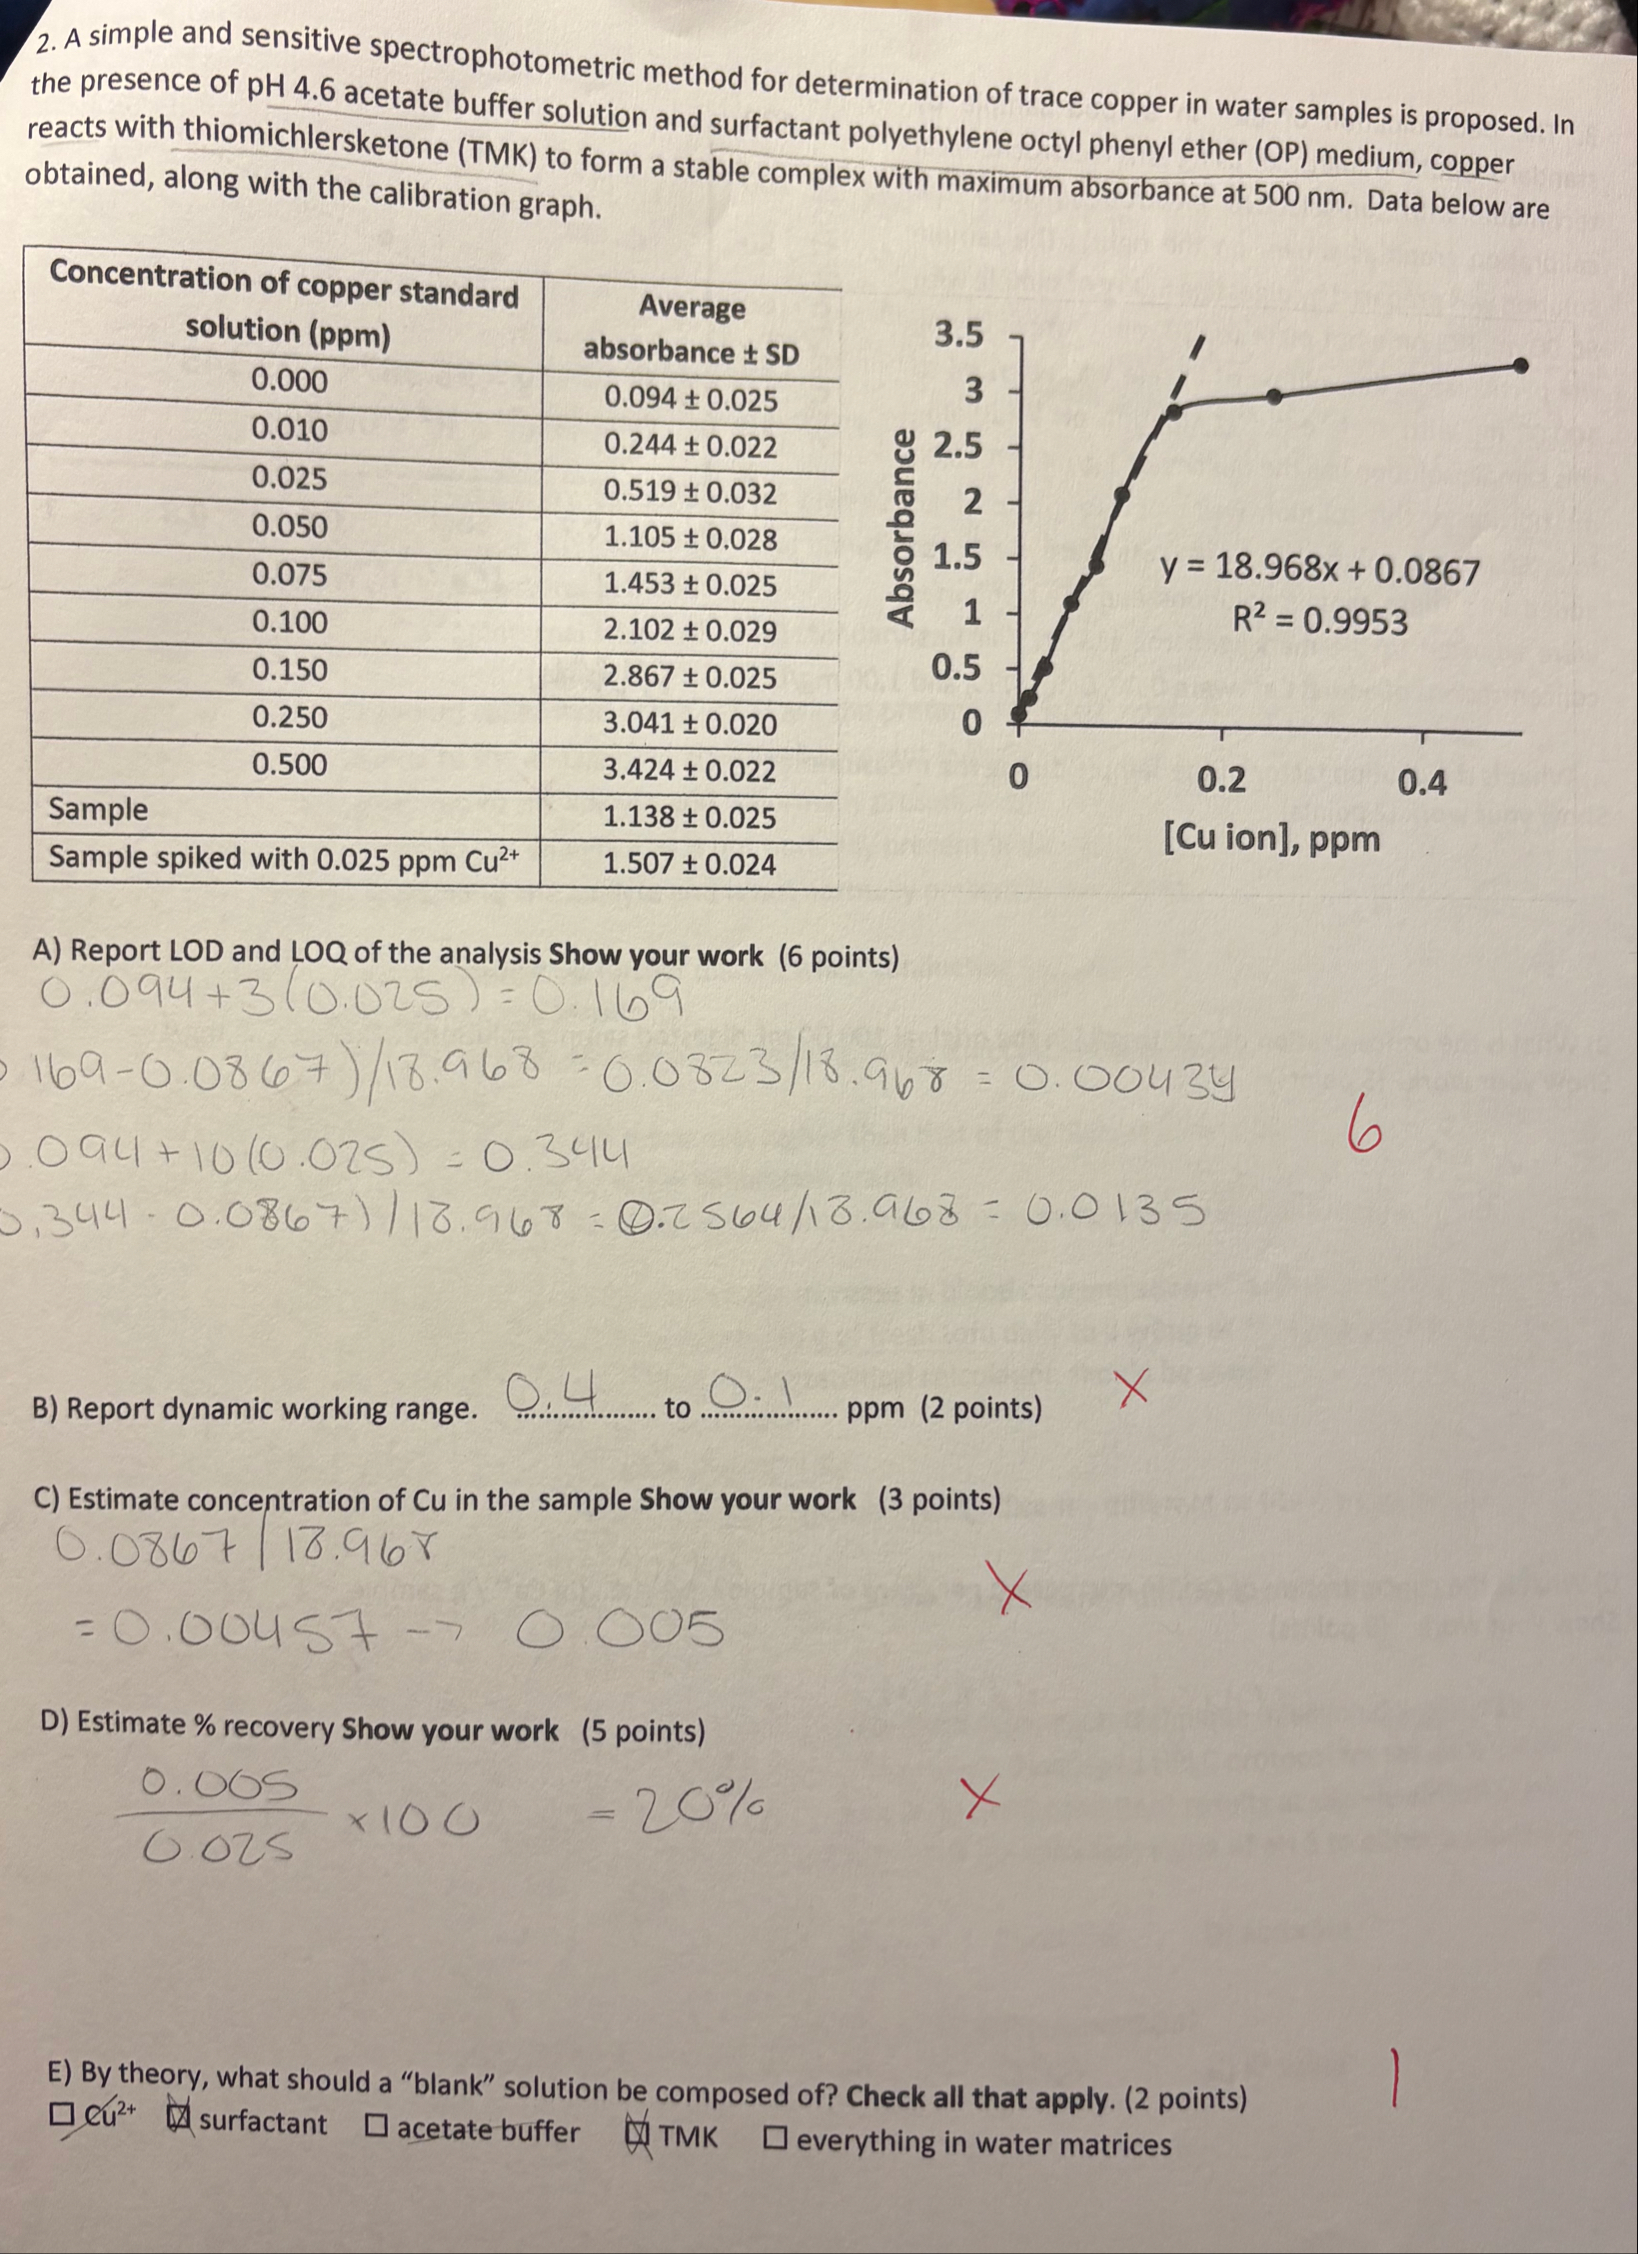 2. A simple and sensitive spectrophotometric method for determination of trace copper in water samples is proposed. In
the presence of pH 4.6 acetate buffer solution and surfactant polyethylene octyl phenyl ether (OP) medium, copper
reacts with thiomichlersketone (TMK) to form a stable complex with maximum absorbance at 500 nm. Data below are
obtained, along with the calibration graph.
Concentration of copper standard solution (ppm) Average absorbance ± SD
0.000 0.094 ± 0.025
0.010 0.244 ± 0.022
0.025 0.519 ± 0.032
0.050 1.105 ± 0.028
0.075 1.453 ± 0.025
0.100 2.102 ± 0.029
0.150 2.867 ± 0.025
0.250 3.041 ± 0.020
0.500 3.424 ± 0.022
Sample 1.138 ± 0.025
Sample spiked with 0.025 ppm Cu²⁺ 1.507 ± 0.024
Absorbance
3.5
3
2.5
2
1.5
1
0.5
0
y = 18.968x + 0.0867
R² = 0.9953
0 0.2 0.4
[Cu ion], ppm
A) Report LOD and LOQ of the analysis Show your work (6 points)
0.094+3(0.025) = 0.169
169-0.0867)/18.968 = 0.0823/18.968 = 0.00434
.094+10(0.025) = 0.344
0.344-0.0867)/18.968 = 0.2564/18.968 = 0.0135
6
B) Report dynamic working range. 0.4 to 0.1 ppm (2 points) X
C) Estimate concentration of Cu in the sample Show your work (3 points)
0.0867/18.968
= 0.00457 -> 0.005
X
D) Estimate % recovery Show your work (5 points)
0.005
0.025
×100 = 20%
X
E) By theory, what should a “blank” solution be composed of? Check all that apply. (2 points) 1
☐ Cu²⁺ ☒ surfactant ☐ acetate buffer ☒ TMK ☐ everything in water matrices